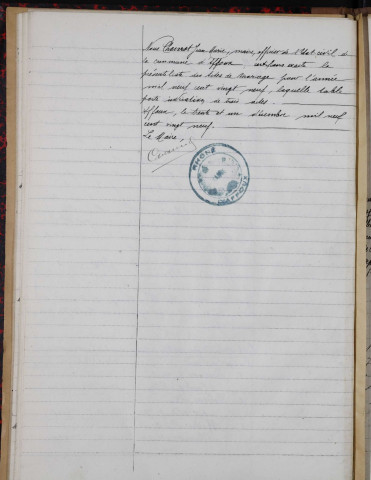 Nous Jean Marie, maire, officier de l'état civil de
la commune d'Affoux certifions exacte la
présente liste des actes de mariage pour l'année
mil neuf cent vingt neuf, laquelle table
porte indication de trois actes.
Affoux, le trente et un décembre mil neuf
cent vingt neuf.
Le Maire.
RHÔNE
D'AFFOUX